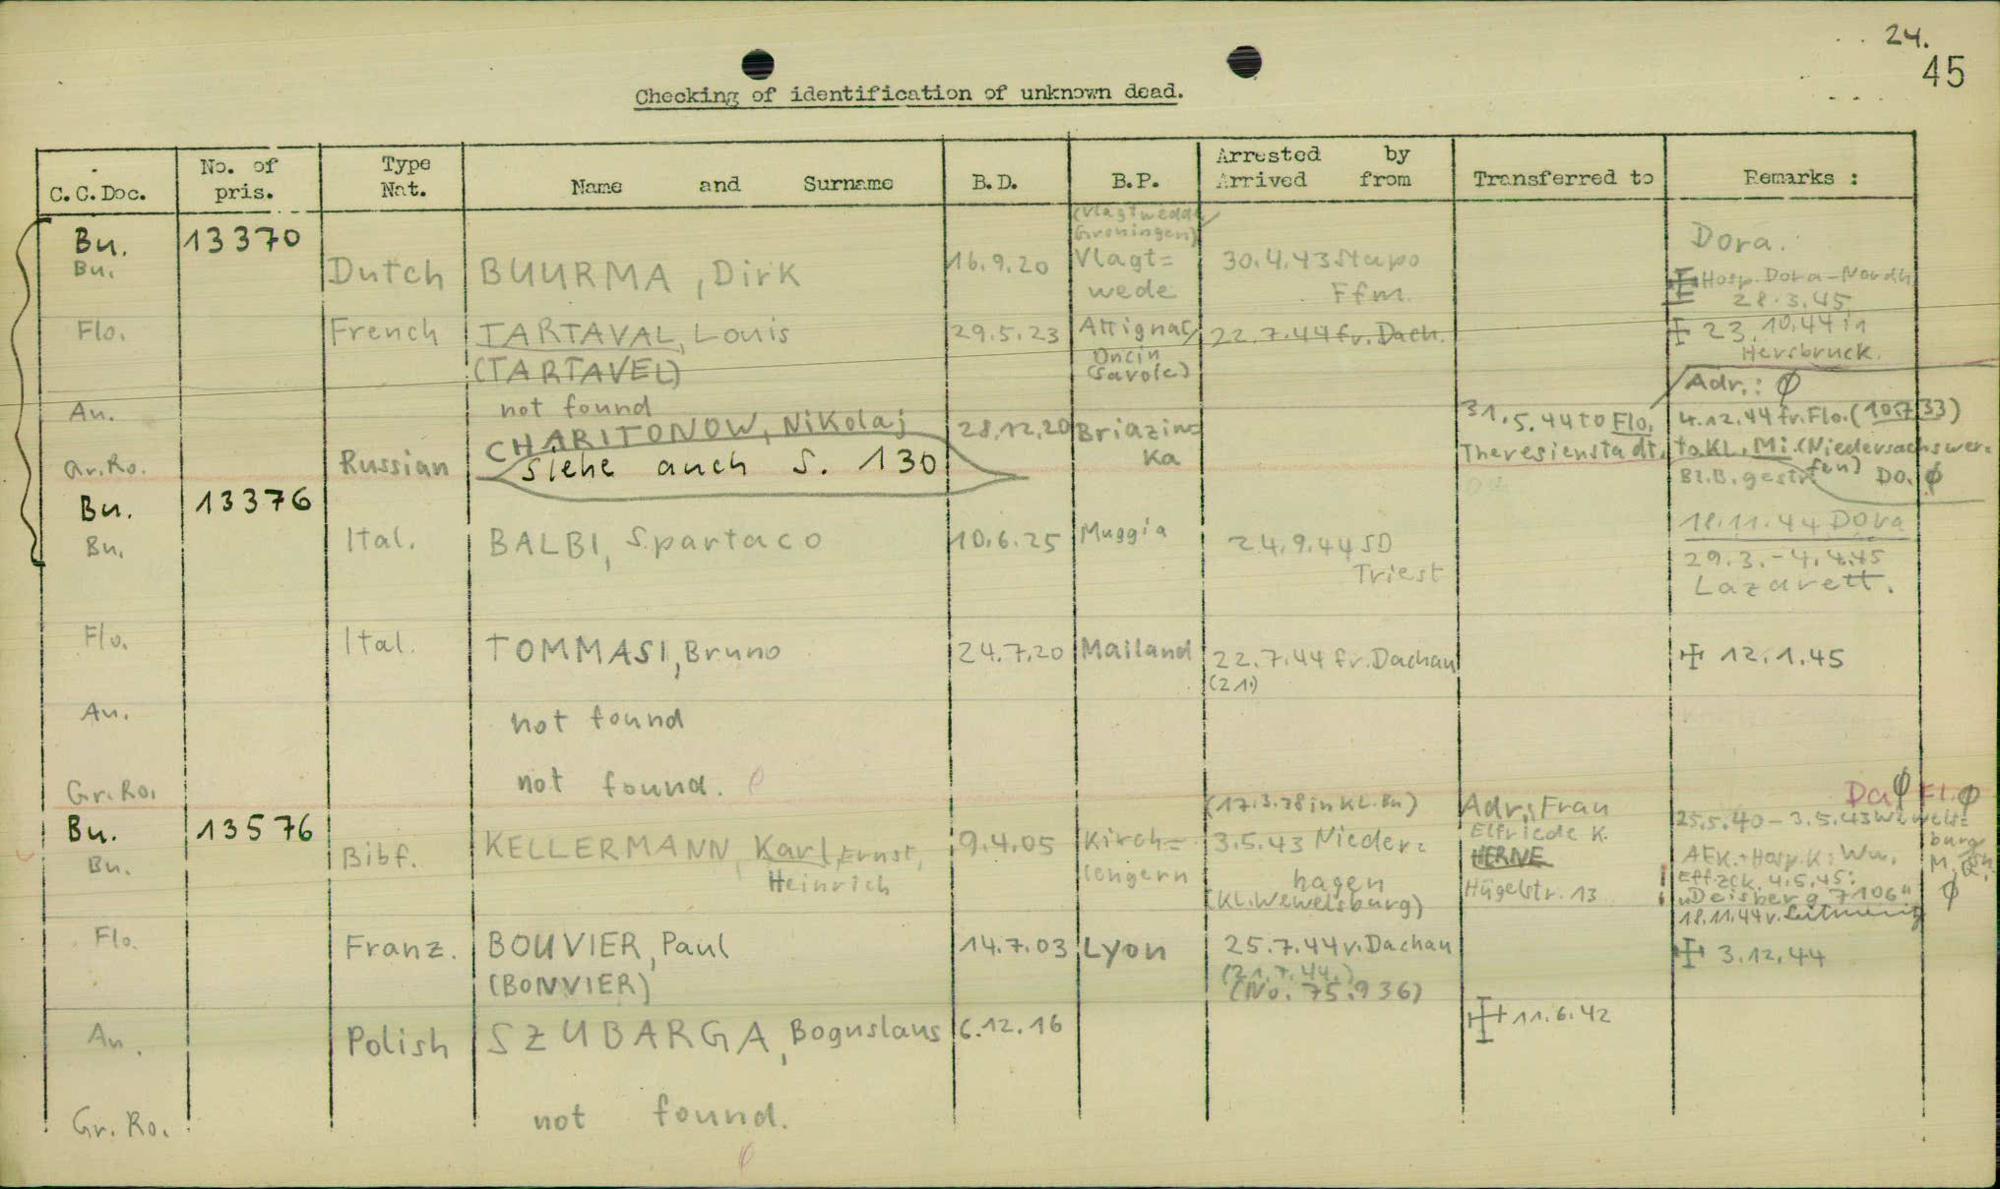 24.
45
Checking of identification of unknown dead.
C.C.Doc. No. of pris. Type Nat. Name and Surname B.D. B.P. Arrested by Arrived from Transferred to Remarks :
Bu. 13370 (Vlagtwedde Groningen) Dora.
Bu. Dutch BUURMA, Dirk 16.9.20 Vlagt= wede 30.4.43 Stapo Ffm. Hosp. Dora-Nordh 28.3.45
Flo. French TARTAVAL, Louis 29.5.23 Attignat, 22.7.44 fr. Dach. 23.10.44 in Hersbruck.
(TARTAVEL) Oncin (Savoie)
An. not found
Adr.: ϕ
CHARITONOW, Nikolaj 28.12.20 Briazin= ka 31.5.44 to Flo, 4.12.44 fr. Flo. (10733)
Gr.Ro. Russian siehe auch S. 130 Theresienstadt, to KL. Mi. (Niedersachswer= fen)
Bl.B. gestr. Do. ϕ
Bu. 13376
Bu. Ital. BALBI, Spartaco 10.6.25 Muggia 24.9.44 SD Triest 18.11.44 Dora
29.3.-4.4.45
Lazarett.
Flo. Ital. TOMMASI, Bruno 24.7.20 Mailand 22.7.44 fr. Dachau 12.1.45
(21.)
An. not found
Gr.Ro. not found.
Da ϕ Fl. ϕ
Bu. 13576 (17.3.38 in KL. Bu) Adr. Frau 25.5.40 - 3.5.43 Wewels= burg
Bu. Bibf. KELLERMANN, Karl, Ernst, Heinrich 9.4.05 Kirch= lengern 3.5.43 Nieder= hagen (KL. Wewelsburg) Elfriede K. HERNE Hügelstr. 13
AEK. + Hosp. K: Wu.
Eff.zck. 4.5.45:
"Deisberg 7106"
18.11.44 v.
ϕ
Flo. Franz. BOUVIER, Paul 14.7.03 Lyon 25.7.44 v. Dachau 3.12.44
(BONVIER) (21.7.44.)
(No. 75.936)
An. Polish SZUBARGA, Boguslaus 6.12.16 11.6.42
Gr. Ro. not found.